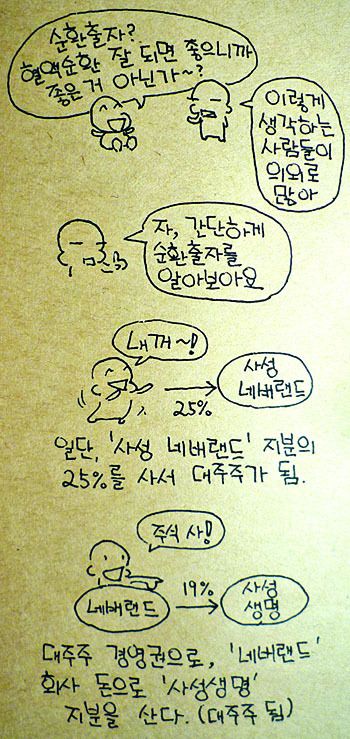 순환출자?
혈액순환 잘 되면 좋으니까
좋은거 아닌가~?
이렇게
생각하는
사람들이
의외로
많아
자, 간단하게
순환출자를
알아보아요
내꺼~!
25%
사성
네버랜드
일단, '사성 네버랜드' 지분의
25%를 사서 대주주가 됨.
주식 사!
네버랜드
19%
사성
생명
대주주 경영권으로, '네버랜드'
회사 돈으로 '사성생명'
지분을 산다. (대주주 됨)